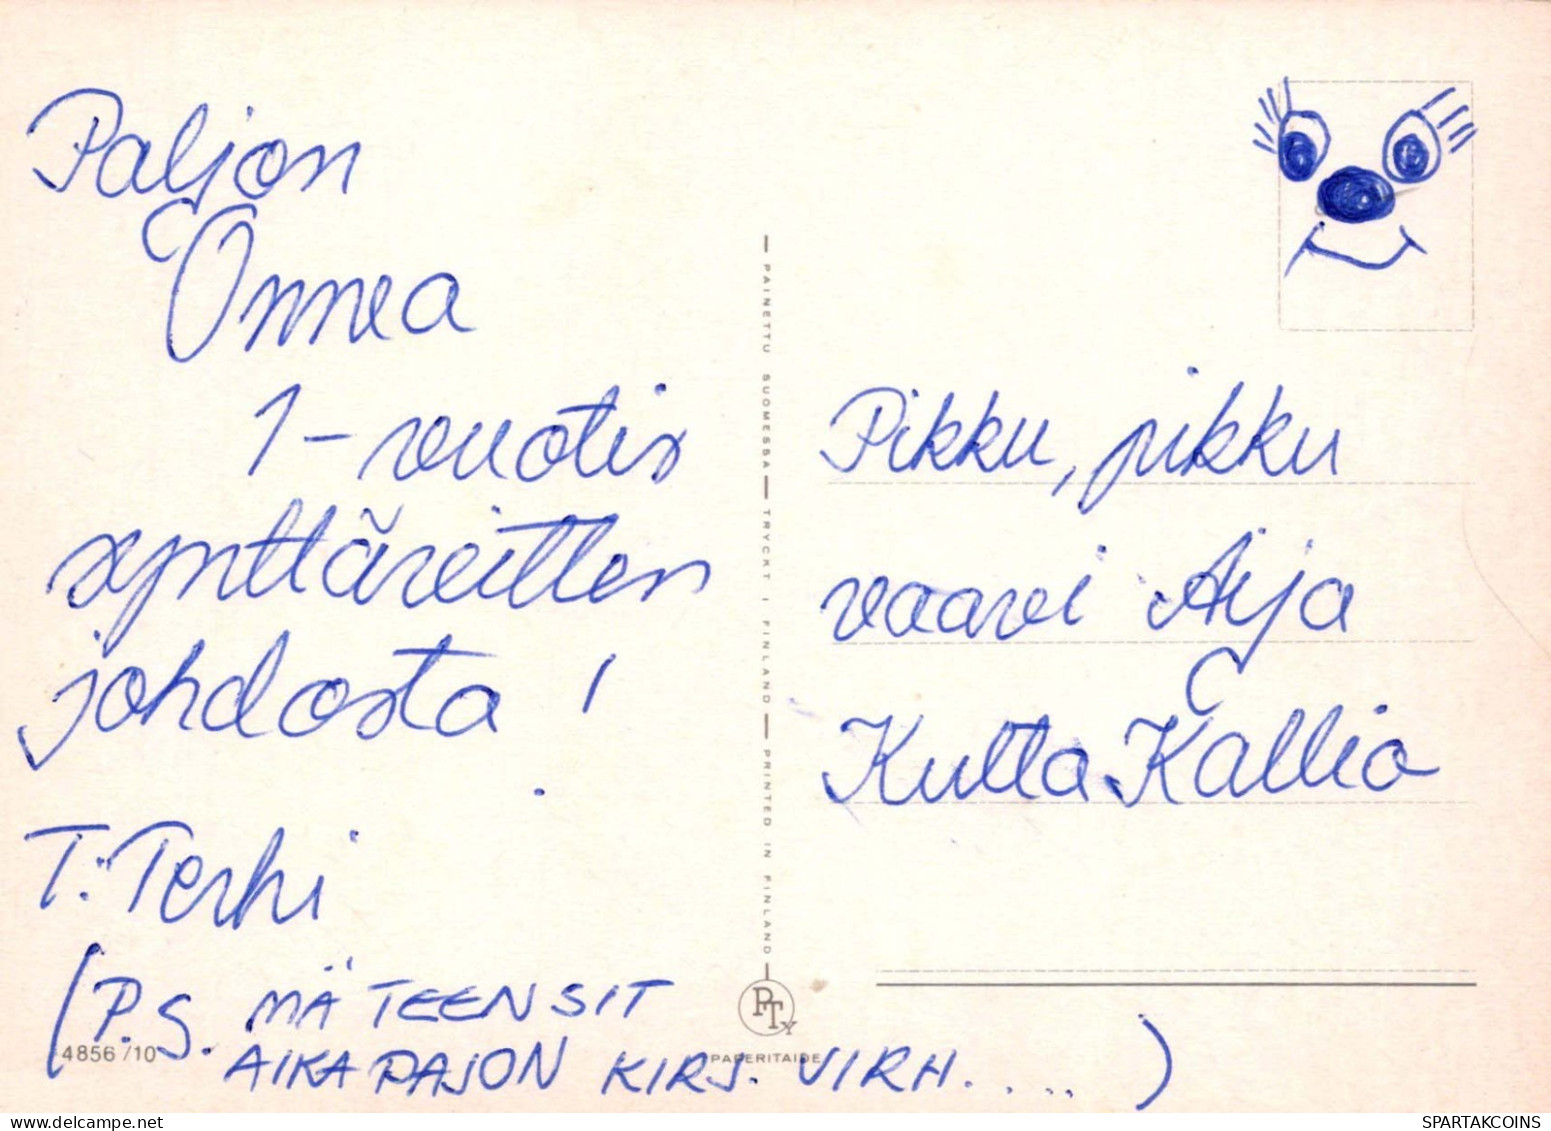 Paljon
Onnea
1-vuotis
synttäreitten
johdosta!
T: Terhi
(P.S. MÄ TEEN SIT
AIKA PAJON KIRJ. VIRH. .... )
4856/10
PAINETTU SUOMESSA — TRYCKT I FINLAND — PRINTED IN FINLAND
PTY
PAPERITAIDE
Pikku, pikku
vaavi Aija
Kutta Kallio
SPARTAKCOINS